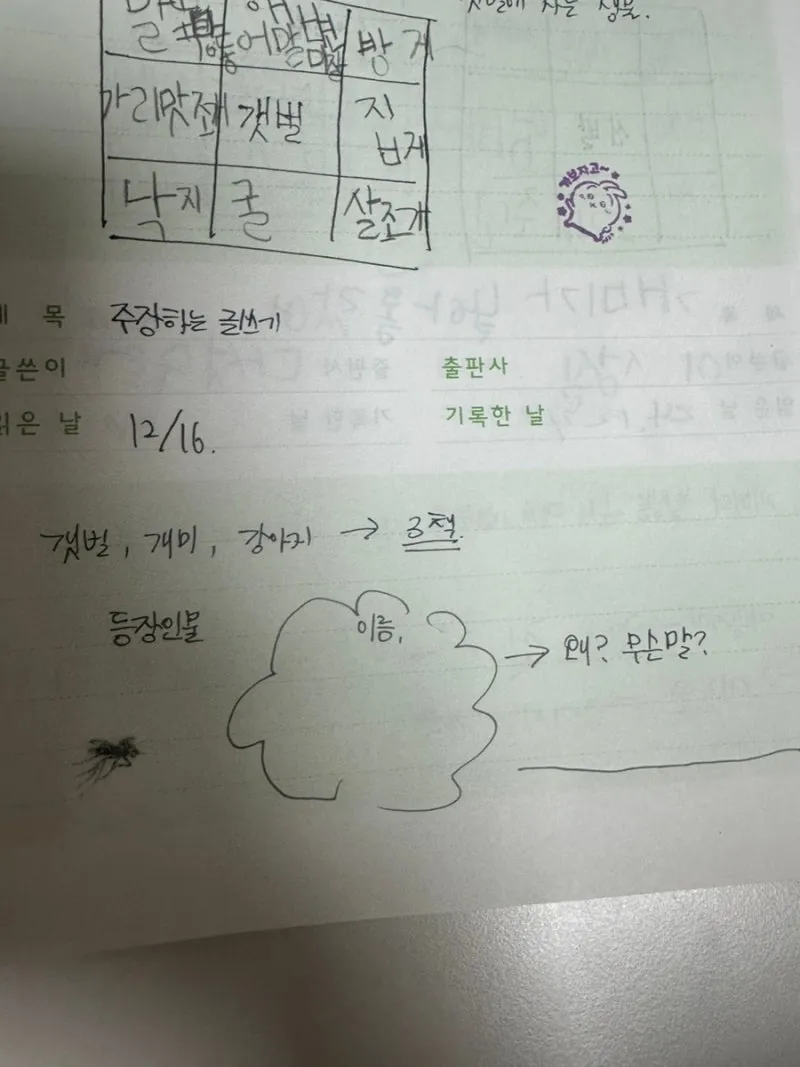 갯벌에 사는 생물.
방 게
가리맛조개 갯벌 지
ㅂ게
낙지 굴 살조개
가보자고~
제 목 주장하는 글쓰기
글쓴이 출판사
읽은 날 12/16. 기록한 날
갯벌, 개미, 강아지 → 3책.
등장인물 이름, → 왜? 무슨말?